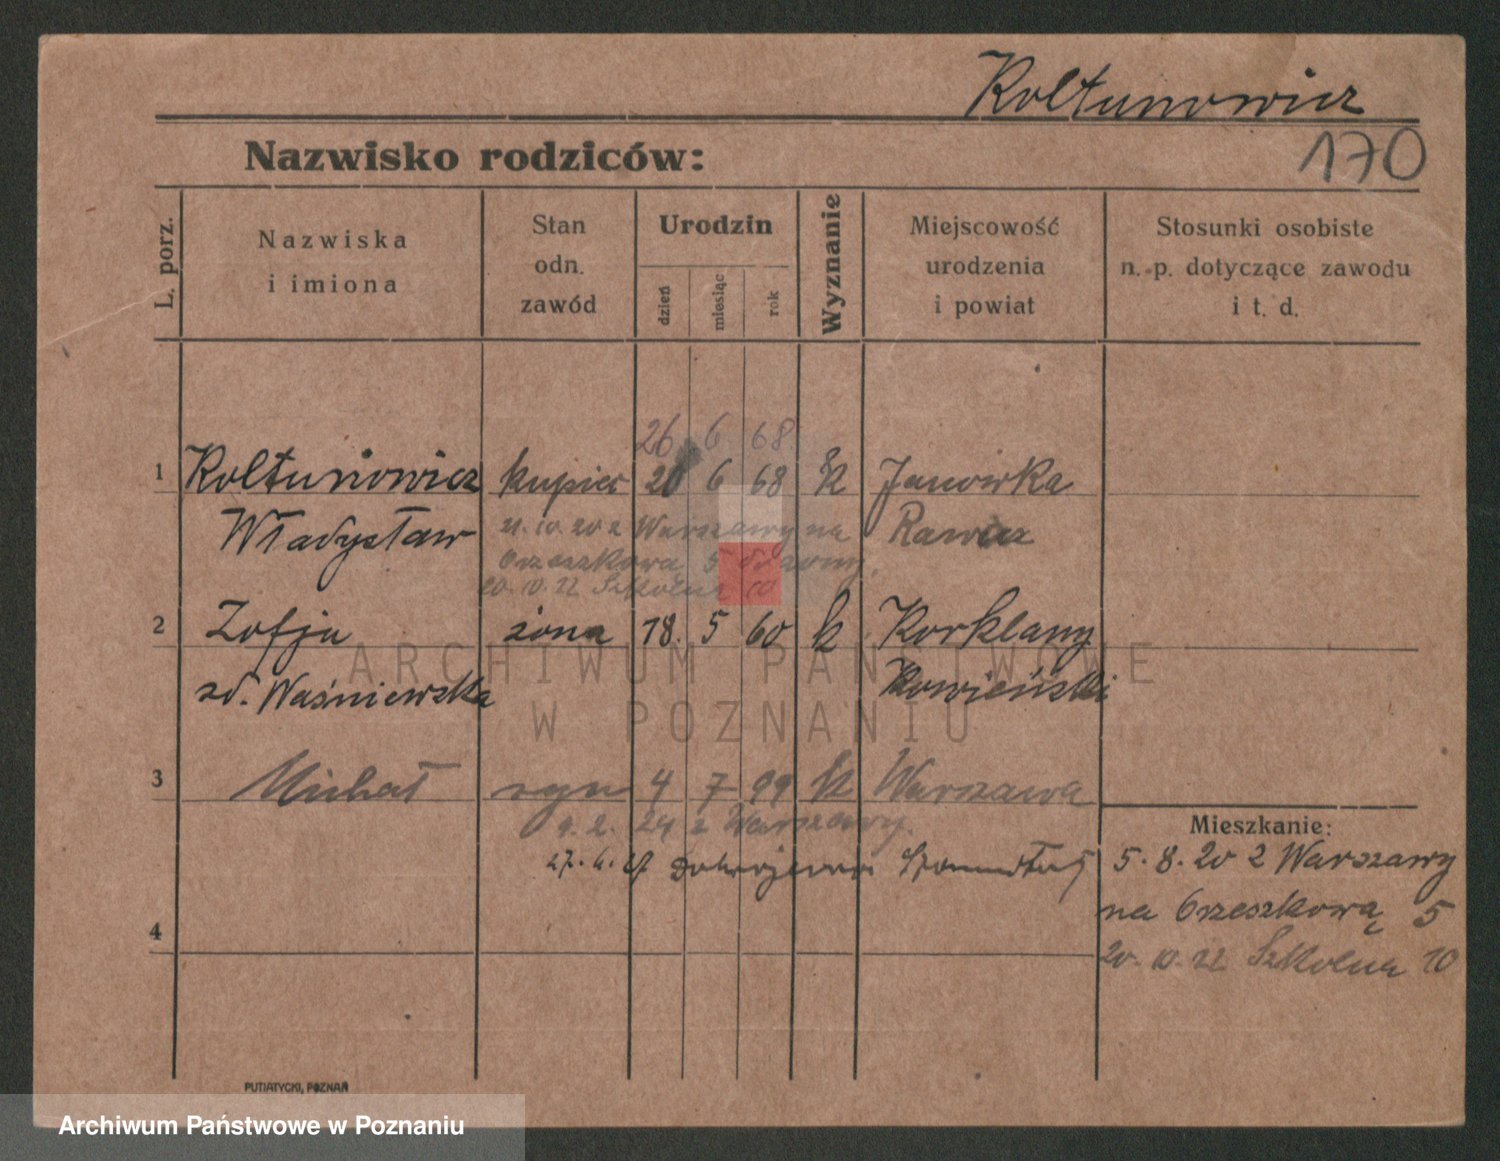 Kołtunowicz
170
Nazwisko rodziców:
L. porz.
Nazwiska
i imiona
Stan
odn.
zawód
Urodzin
dzień
miesiąc
rok
Wyznanie
Miejscowość
urodzenia
i powiat
Stosunki osobiste
n. p. dotyczące zawodu
i t. d.
26 6 68
1 Kołtunowicz kupiec 20 6 68 k Janowika
Władysław Rawicz
21. 10. 20 z Warszawy na
Orzeszkowa 5
20. 10. 22 Szkolna 10
2 Zofja żona 18. 5 60 k Korklany
zd. Waśniewska Kowieński
3 Michał syn 4 7 99 k Warszawa
9. 2. 24 z Warszawy.
27. 6. 27
Mieszkanie:
5. 8. 20 z Warszawy
na Orzeszkową 5
20. 10. 22 Szkolna 10
4
ARCHIWUM PAŃSTWOWE
W POZNANIU
PUTIATYCKI, POZNAŃ
Archiwum Państwowe w Poznaniu